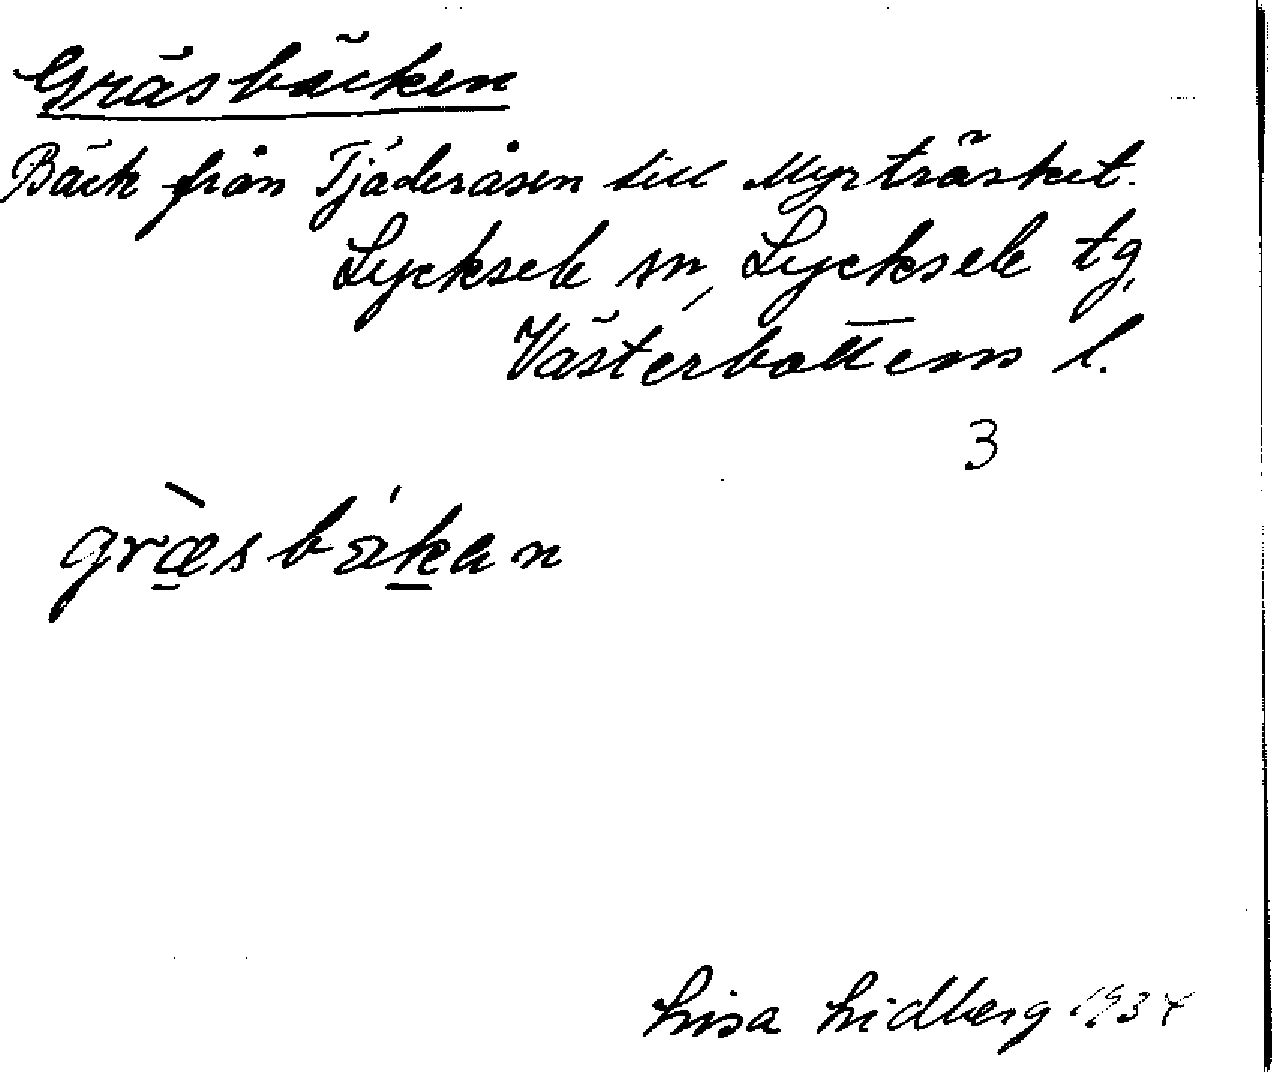 Gräsbäcken
Bäck från Tjäderåsen till Myrträsket.
Lycksele sn, Lycksele tg,
Västerbottens l.
3
græ̀sbákan
Lisa Lidberg 1934